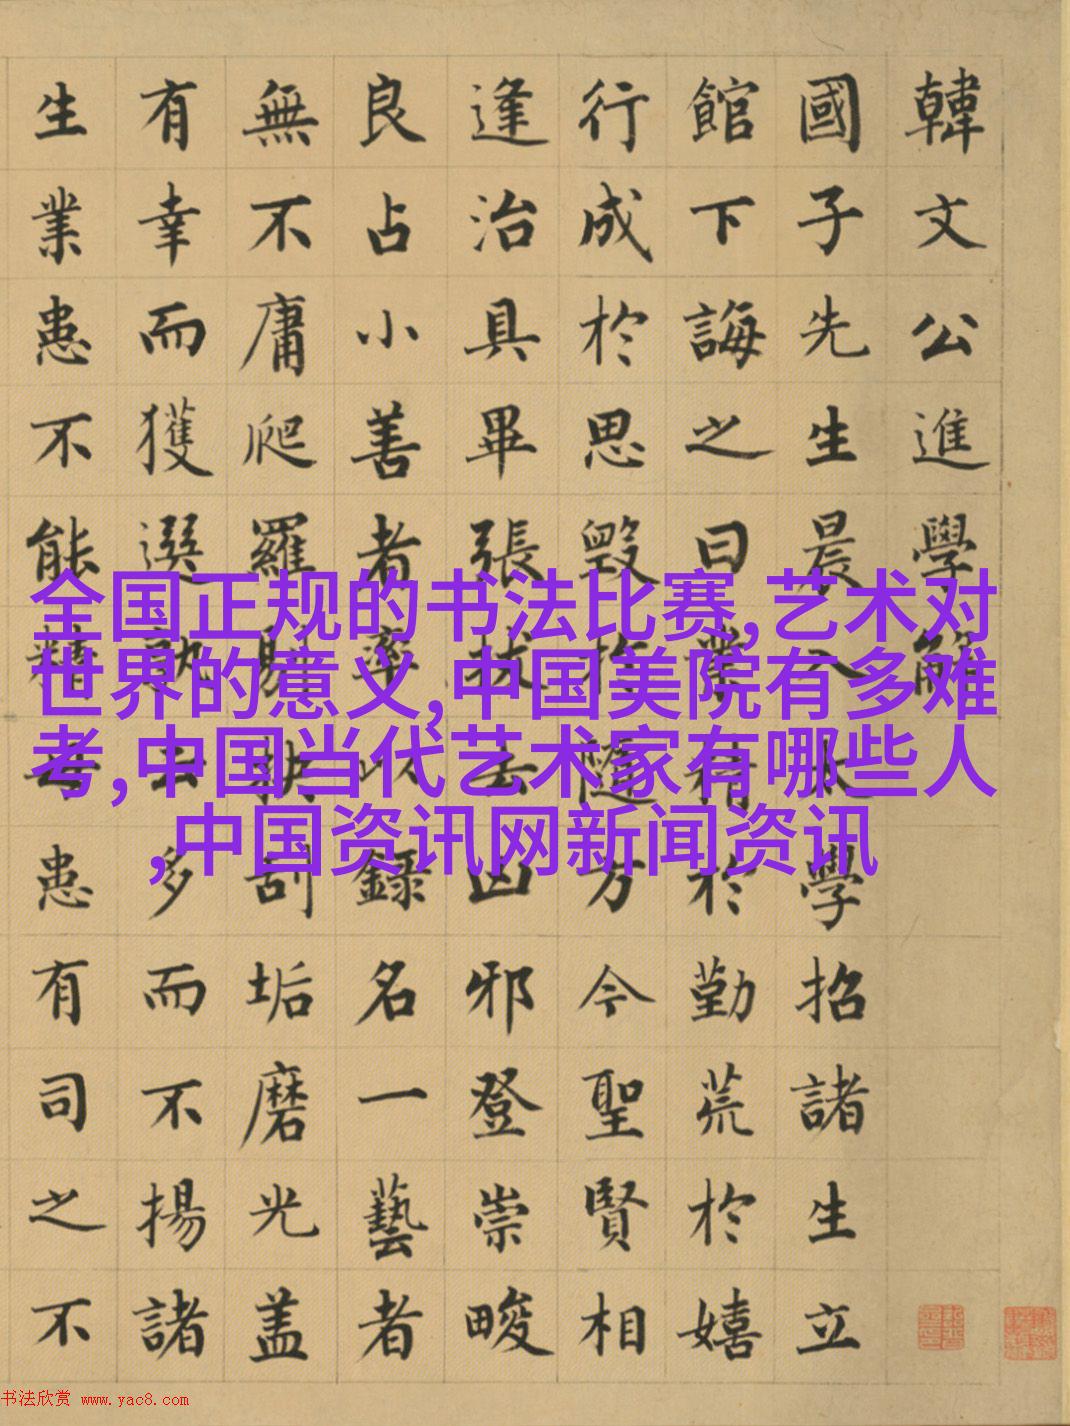 韓文公進學解
國子先生晨入太學招諸生立
館下誨之曰業精於勤荒於嬉
行成於思毀於隨方今聖賢相
逢治具畢張拔去凶邪登崇畯
良占小善者率以錄名一藝者
無不庸爬羅剔抉刮垢磨光盖
有幸而獲選孰云多而不揚諸
生業患不能精無患有司之不
全国正规的书法比赛,艺术对
世界的意义,中国美院有多难
考,中国当代艺术家有哪些人
,中国资讯网新闻资讯
书法欣赏 www.yac8.com